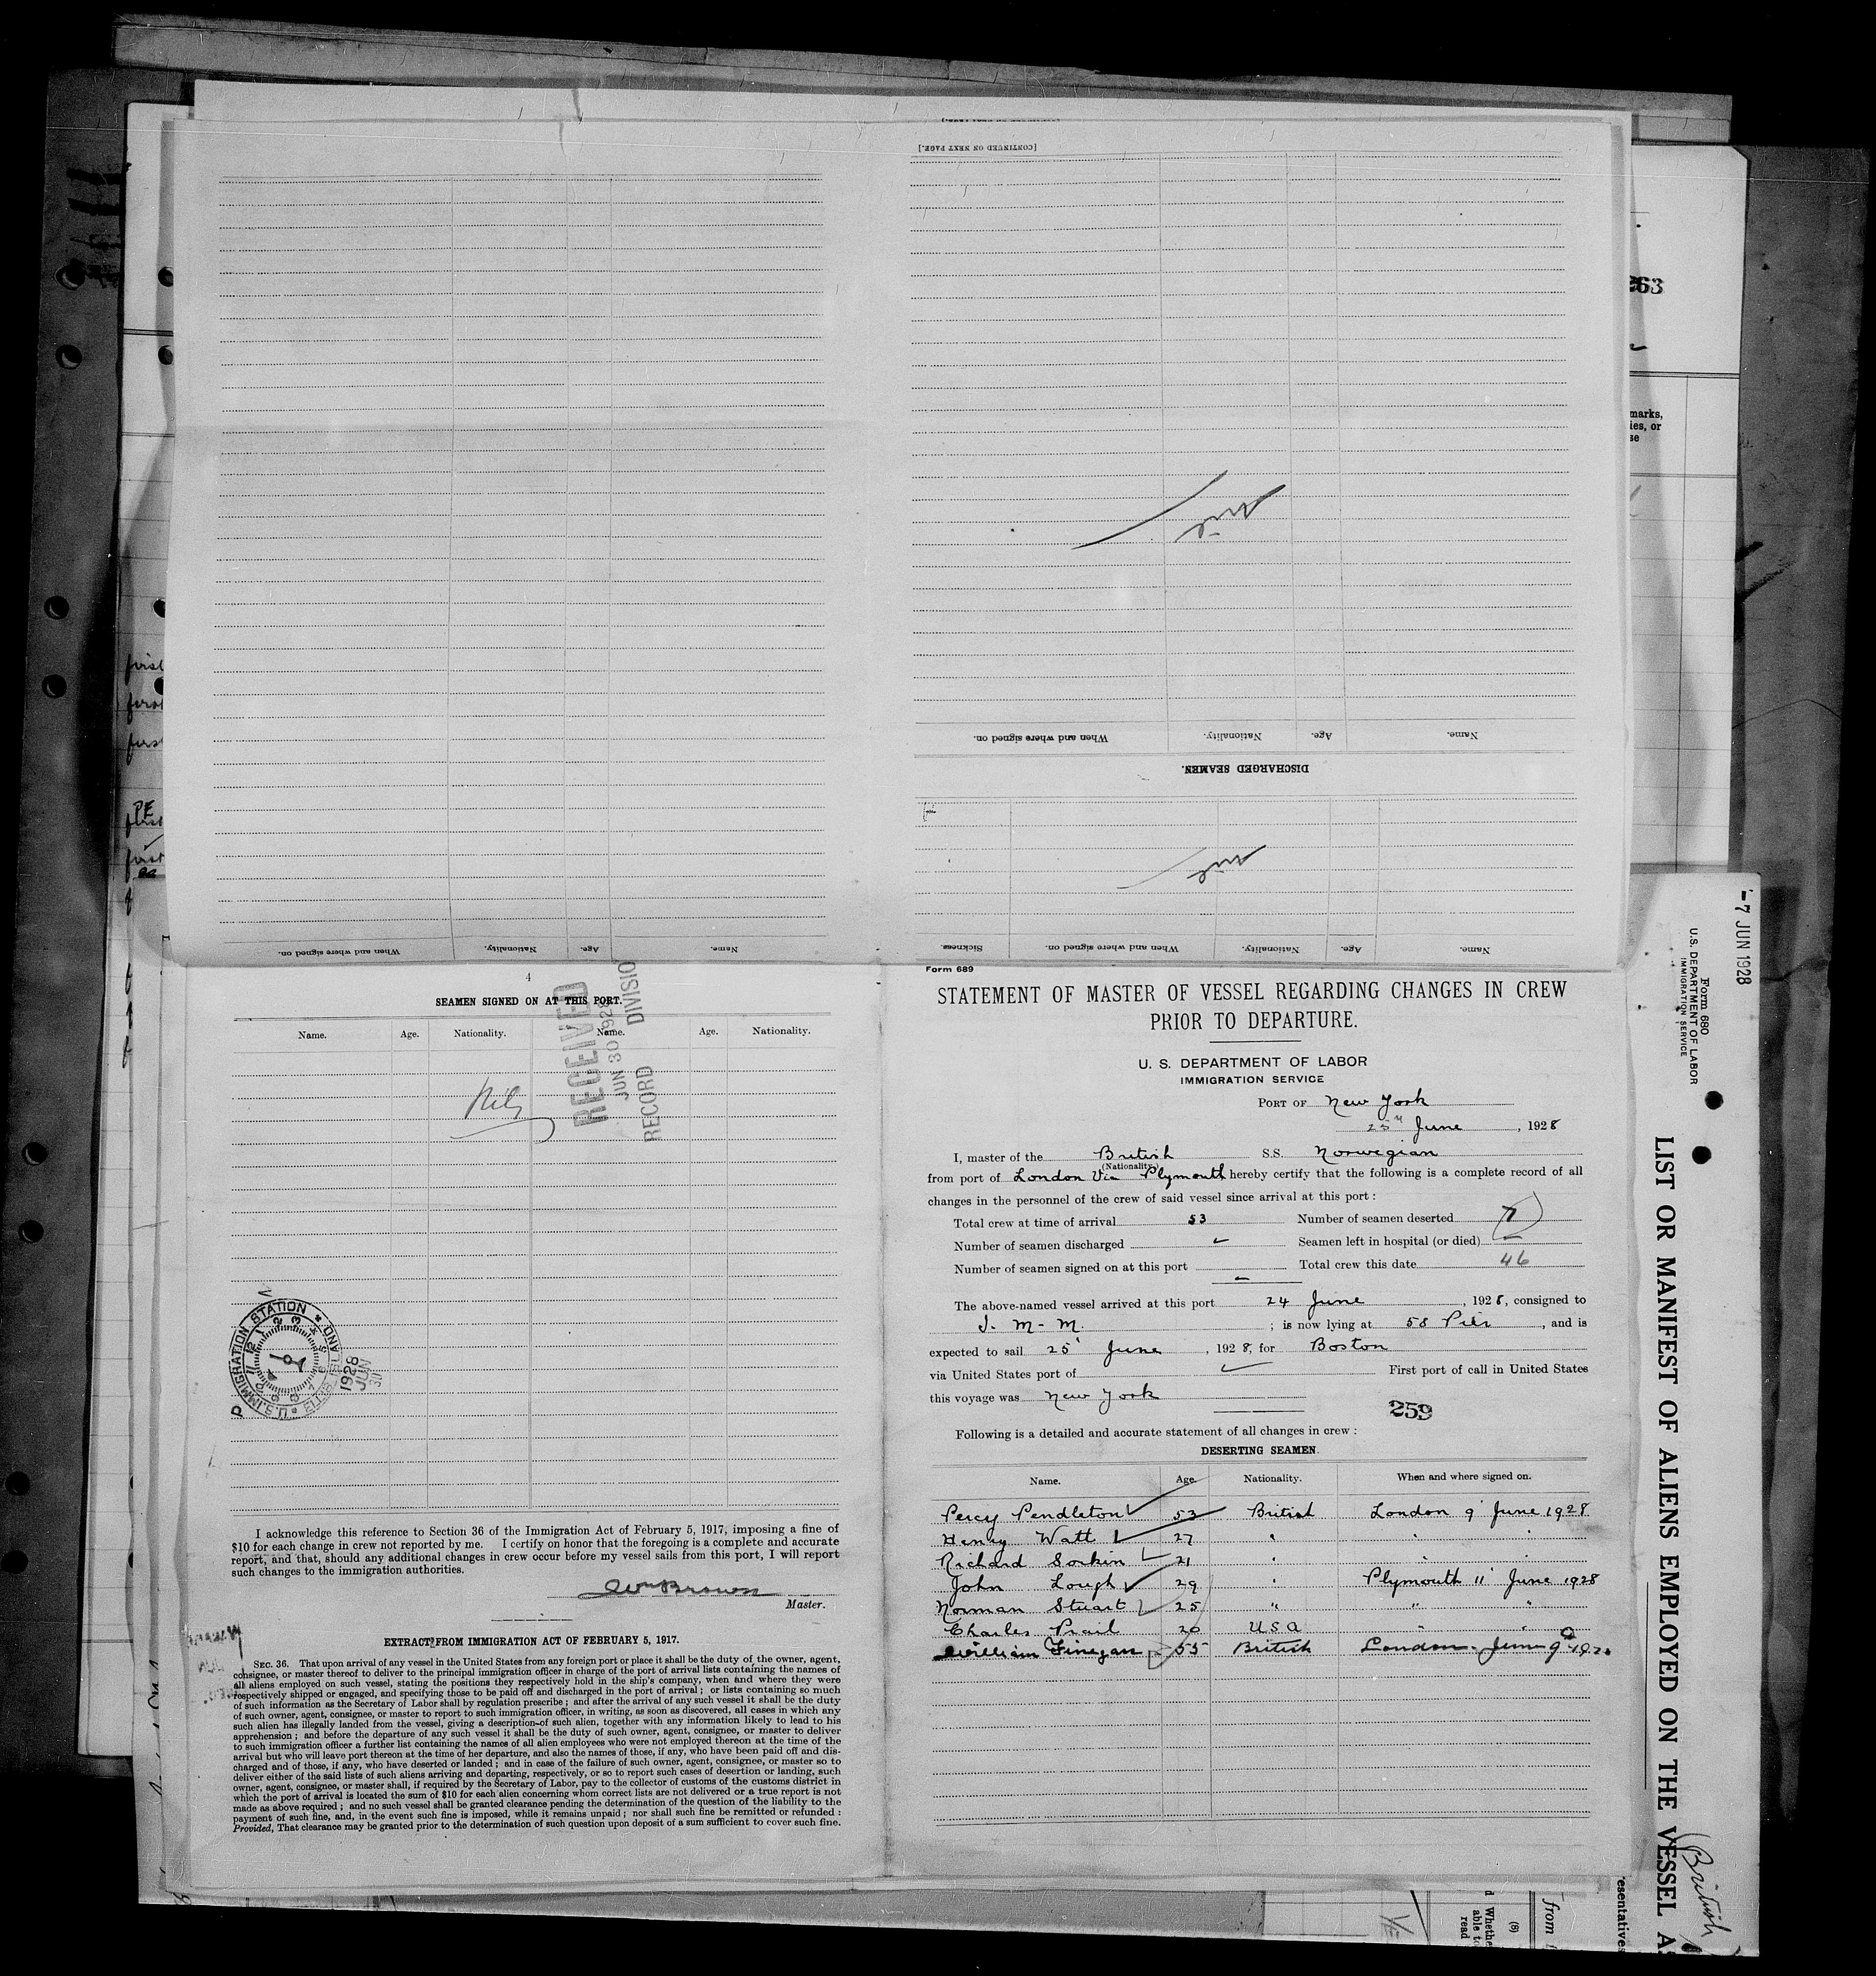 [CONTINUED ON NEXT PAGE.]
When and where signed on. Nationality. Age. Name.
DISCHARGED SEAMEN.
Sickness. When and where signed on. Nationality. Age. Name.
When and where signed on. Nationality. Age. Name.
263
marks,
ies, or
se
4
SEAMEN SIGNED ON AT THIS PORT.
Name. Age. Nationality. Name. Age. Nationality.
RECEIVED
JUN 30 1928
RECORD DIVISIO
U.S. IMMIGRATION STATION * ELLIS ISLAND *
1928
JUN
30
P
I acknowledge this reference to Section 36 of the Immigration Act of February 5, 1917, imposing a fine of
$10 for each change in crew not reported by me. I certify on honor that the foregoing is a complete and accurate
report, and that, should any additional changes in crew occur before my vessel sails from this port, I will report
such changes to the immigration authorities.
Wm Brown
Master.
EXTRACT FROM IMMIGRATION ACT OF FEBRUARY 5, 1917.
SEC. 36. That upon arrival of any vessel in the United States from any foreign port or place it shall be the duty of the owner, agent,
consignee, or master thereof to deliver to the principal immigration officer in charge of the port of arrival lists containing the names of
all aliens employed on such vessel, stating the positions they respectively hold in the ship's company, when and where they were
respectively shipped or engaged, and specifying those to be paid off and discharged in the port of arrival; or lists containing so much
of such information as the Secretary of Labor shall by regulation prescribe; and after the arrival of any such vessel it shall be the duty
of such owner, agent, consignee, or master to report to such immigration officer, in writing, as soon as discovered, all cases in which any
such alien has illegally landed from the vessel, giving a description of such alien, together with any information likely to lead to his
apprehension; and before the departure of any such vessel it shall be the duty of such owner, agent, consignee, or master to deliver
to such immigration officer a further list containing the names of all alien employees who were not employed thereon at the time of the
arrival but who will leave port thereon at the time of her departure, and also the names of those, if any, who have been paid off and dis-
charged and of those, if any, who have deserted or landed; and in case of the failure of such owner, agent, consignee, or master so to
deliver either of the said lists of such aliens arriving and departing, respectively, or so to report such cases of desertion or landing, such
owner, agent, consignee, or master shall, if required by the Secretary of Labor, pay to the collector of customs of the customs district in
which the port of arrival is located the sum of $10 for each alien concerning whom correct lists are not delivered or a true report is not
made as above required; and no such vessel shall be granted clearance pending the determination of the question of the liability to the
payment of such fine, and, in the event such fine is imposed, while it remains unpaid; nor shall such fine be remitted or refunded:
Provided, That clearance may be granted prior to the determination of such question upon deposit of a sum sufficient to cover such fine.
Form 689
STATEMENT OF MASTER OF VESSEL REGARDING CHANGES IN CREW
PRIOR TO DEPARTURE.
U. S. DEPARTMENT OF LABOR
IMMIGRATION SERVICE
PORT OF New York
25th June, 1928
I, master of the British S.S. Norwegian
(Nationality.)
from port of London Via Plymouth hereby certify that the following is a complete record of all
changes in the personnel of the crew of said vessel since arrival at this port:
Total crew at time of arrival 53 Number of seamen deserted 7
Number of seamen discharged Seamen left in hospital (or died)
Number of seamen signed on at this port Total crew this date 46
The above-named vessel arrived at this port 24 June, 1928, consigned to
I. M-M.; is now lying at 58 Pier, and is
expected to sail 25 June, 1928, for Boston
via United States port of First port of call in United States
this voyage was New York
259
Following is a detailed and accurate statement of all changes in crew:
DESERTING SEAMEN.
Name. Age. Nationality. When and where signed on.
Percy Pendleton 53 British London 9 June 1928
Henry Watt 27 " " "
Richard Sorkin 21 " " "
John Lough 29 " Plymouth 11 June 1928
Norman Stuart 25 " " "
Charles 20 USA "
William Finegan 55 British London June 9
-7 JUN 1928
Form 680
U.S. DEPARTMENT OF LABOR
IMMIGRATION SERVICE
LIST OR MANIFEST OF ALIENS EMPLOYED ON THE VESSEL AS
British
(8)
Whethe
able to
read
from
esentatives